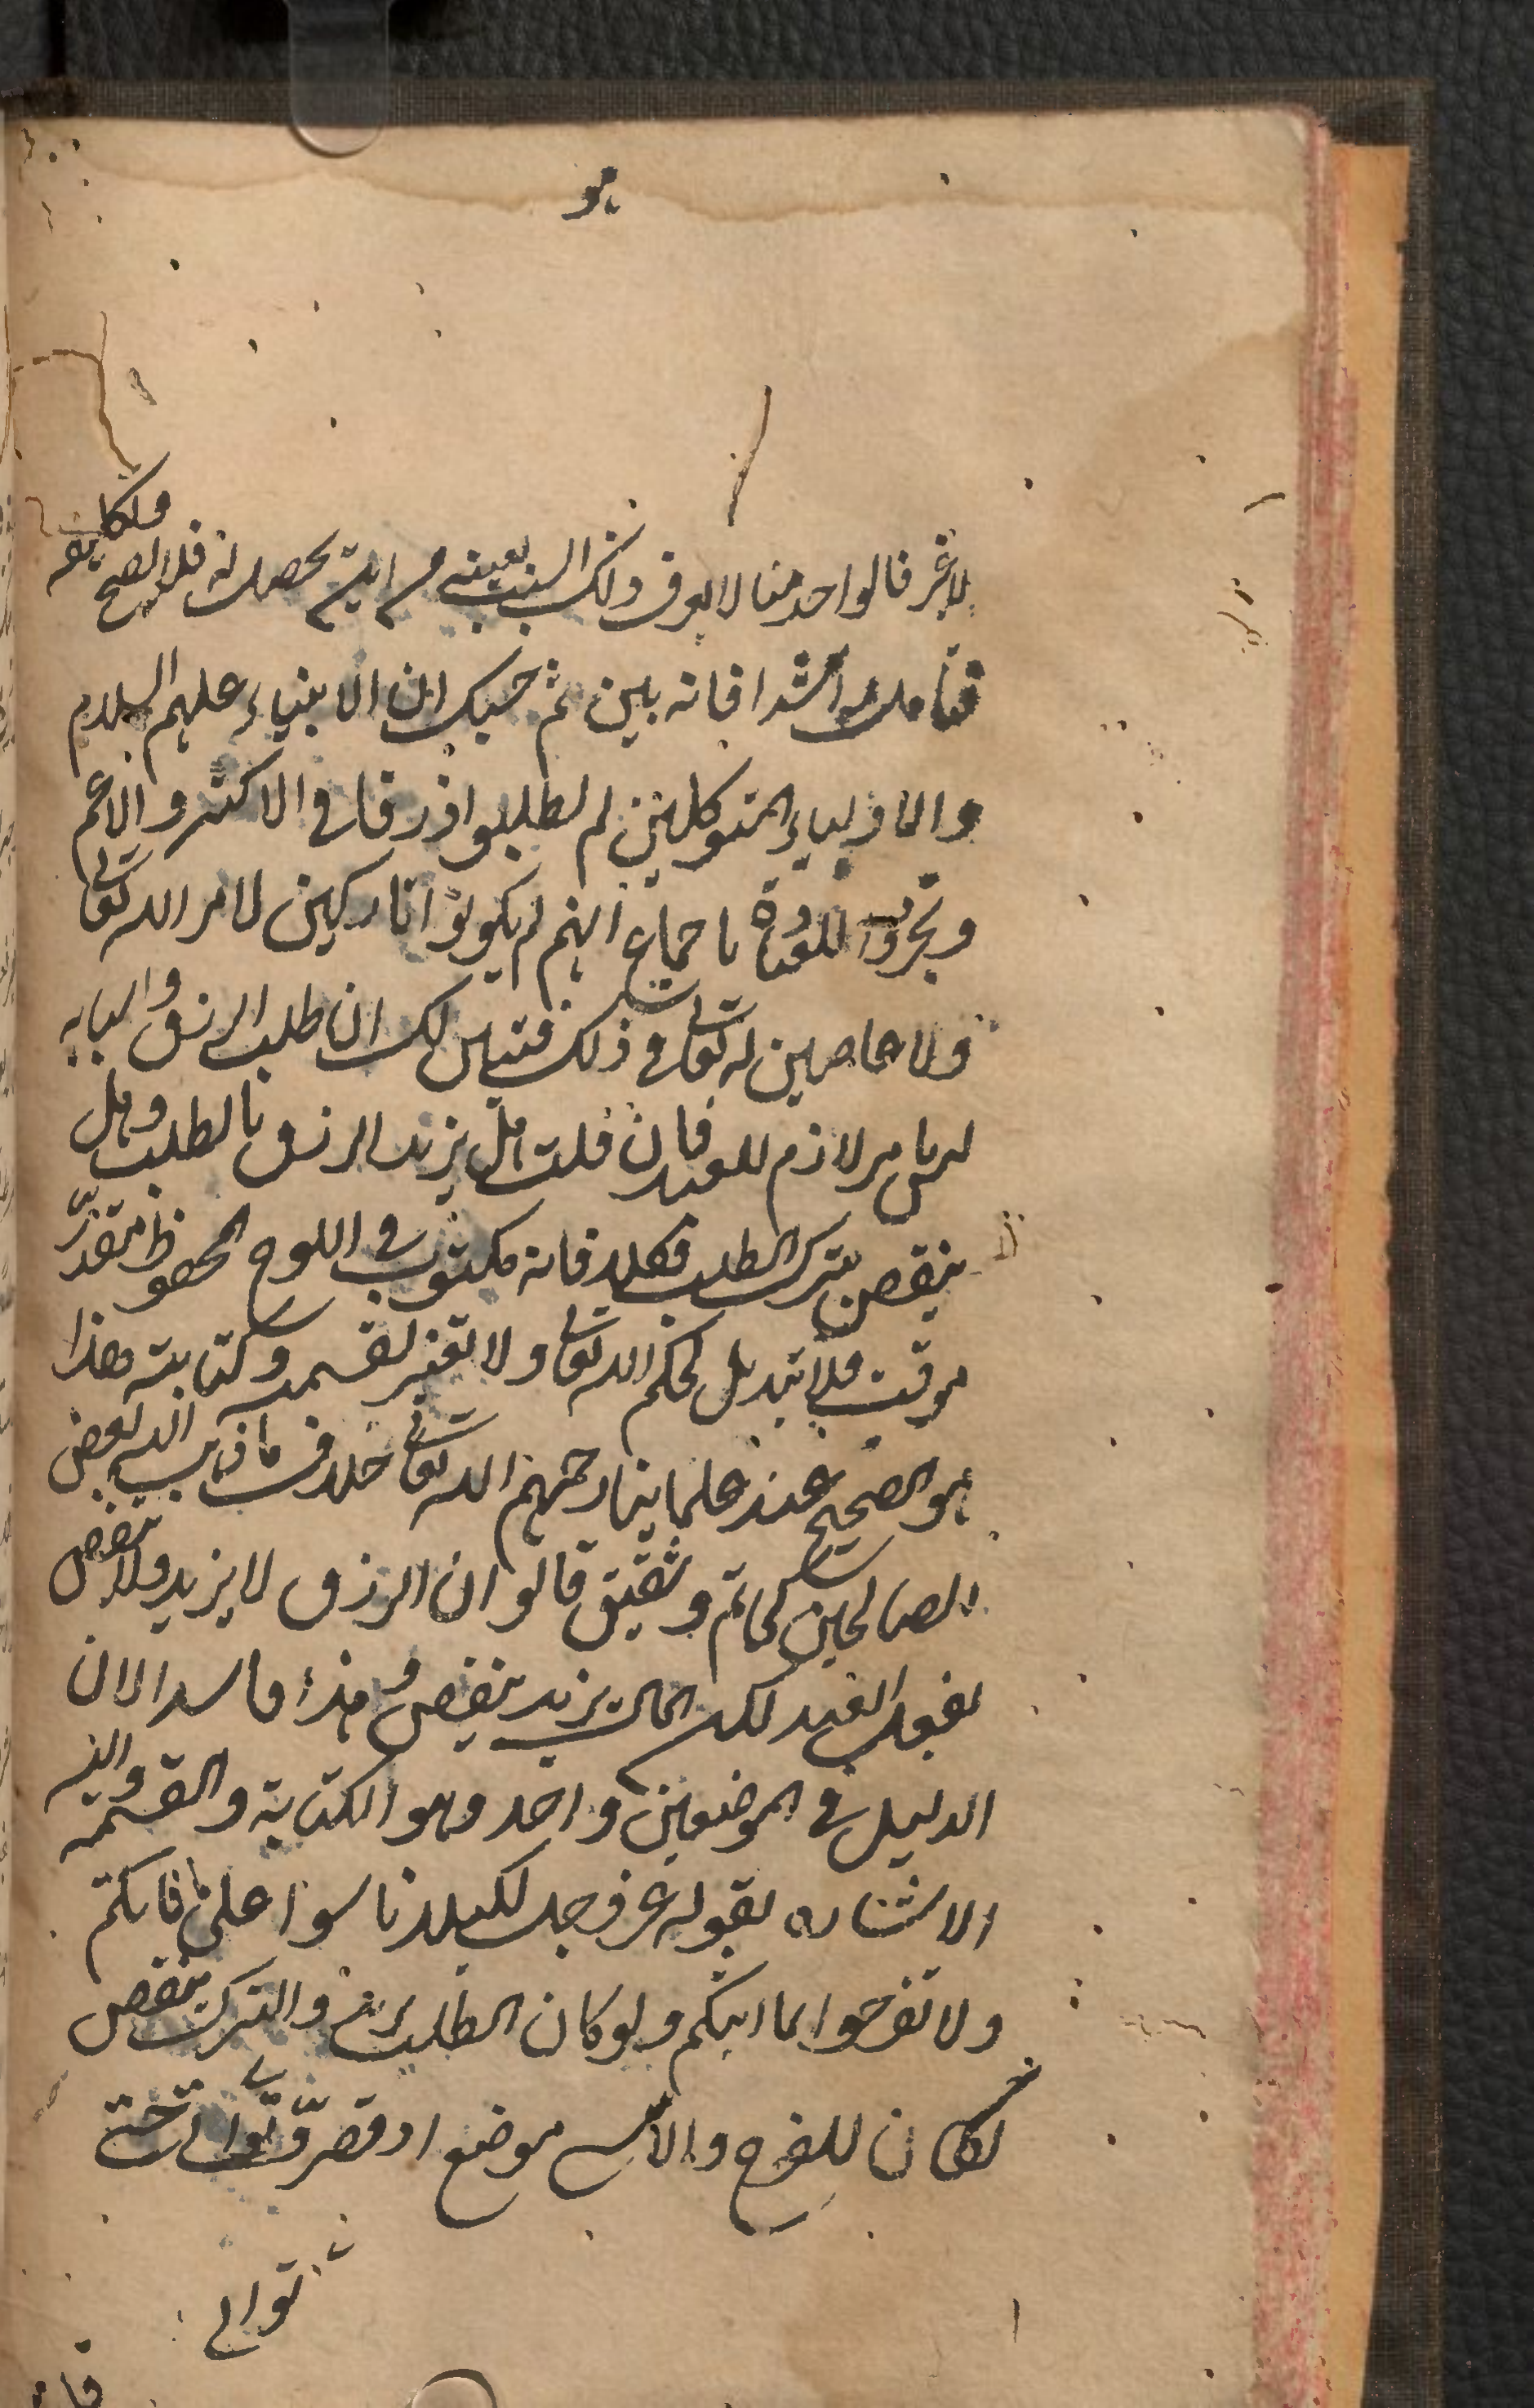 هو
لا غير فالواحد منا لا يعرف ذلك السبب بعينه من اين يحصل له فلا يصح تكليفه
فتأمل راشدا فانه بين ثم حسبك ان الانبياء عليهم السلام
والاولياء المتوكلين لم يطلبوا رزقا في الاكثر والاعم
وتجردوا للعبادة باجماع انهم لم يكونوا تاركين لامر الله تعالى
ولا عاصين له تعالى في ذلك فتبين لك ان طلب الرزق واسبابه
ليس بامر لازم للعبد فان قلت هل يزيد الرزق بالطلب وهل
ينقص بترك الطلب فكلا فانه مكتوب في اللوح المحفوظ مقدر
موقت فلا تبديل لحكم الله تعالى ولا تغير لقسمه وكتابته هذا
هو الصحيح عند علماينا رحمهم الله تعالى خلاف ما ذهب اليه بعض
الصالحين كحاتم وشقيق قالوا ان الرزق لا يزيد ولا ينقص
بفعل العبد لكن المال يزيد وينقص وهذا فاسد لان
الدليل في الموضعين واحد وهو الكتابة والقسمة واليه
الاشاره بقوله عز وجل لكيلا تاسوا على ما فاتكم
ولا تفرحوا بما اتيكم ولو كان الطلب يزيد والترك ينقص
لكان للفرح والاسى موضع اذ قصر وتوانى حتى
توانى